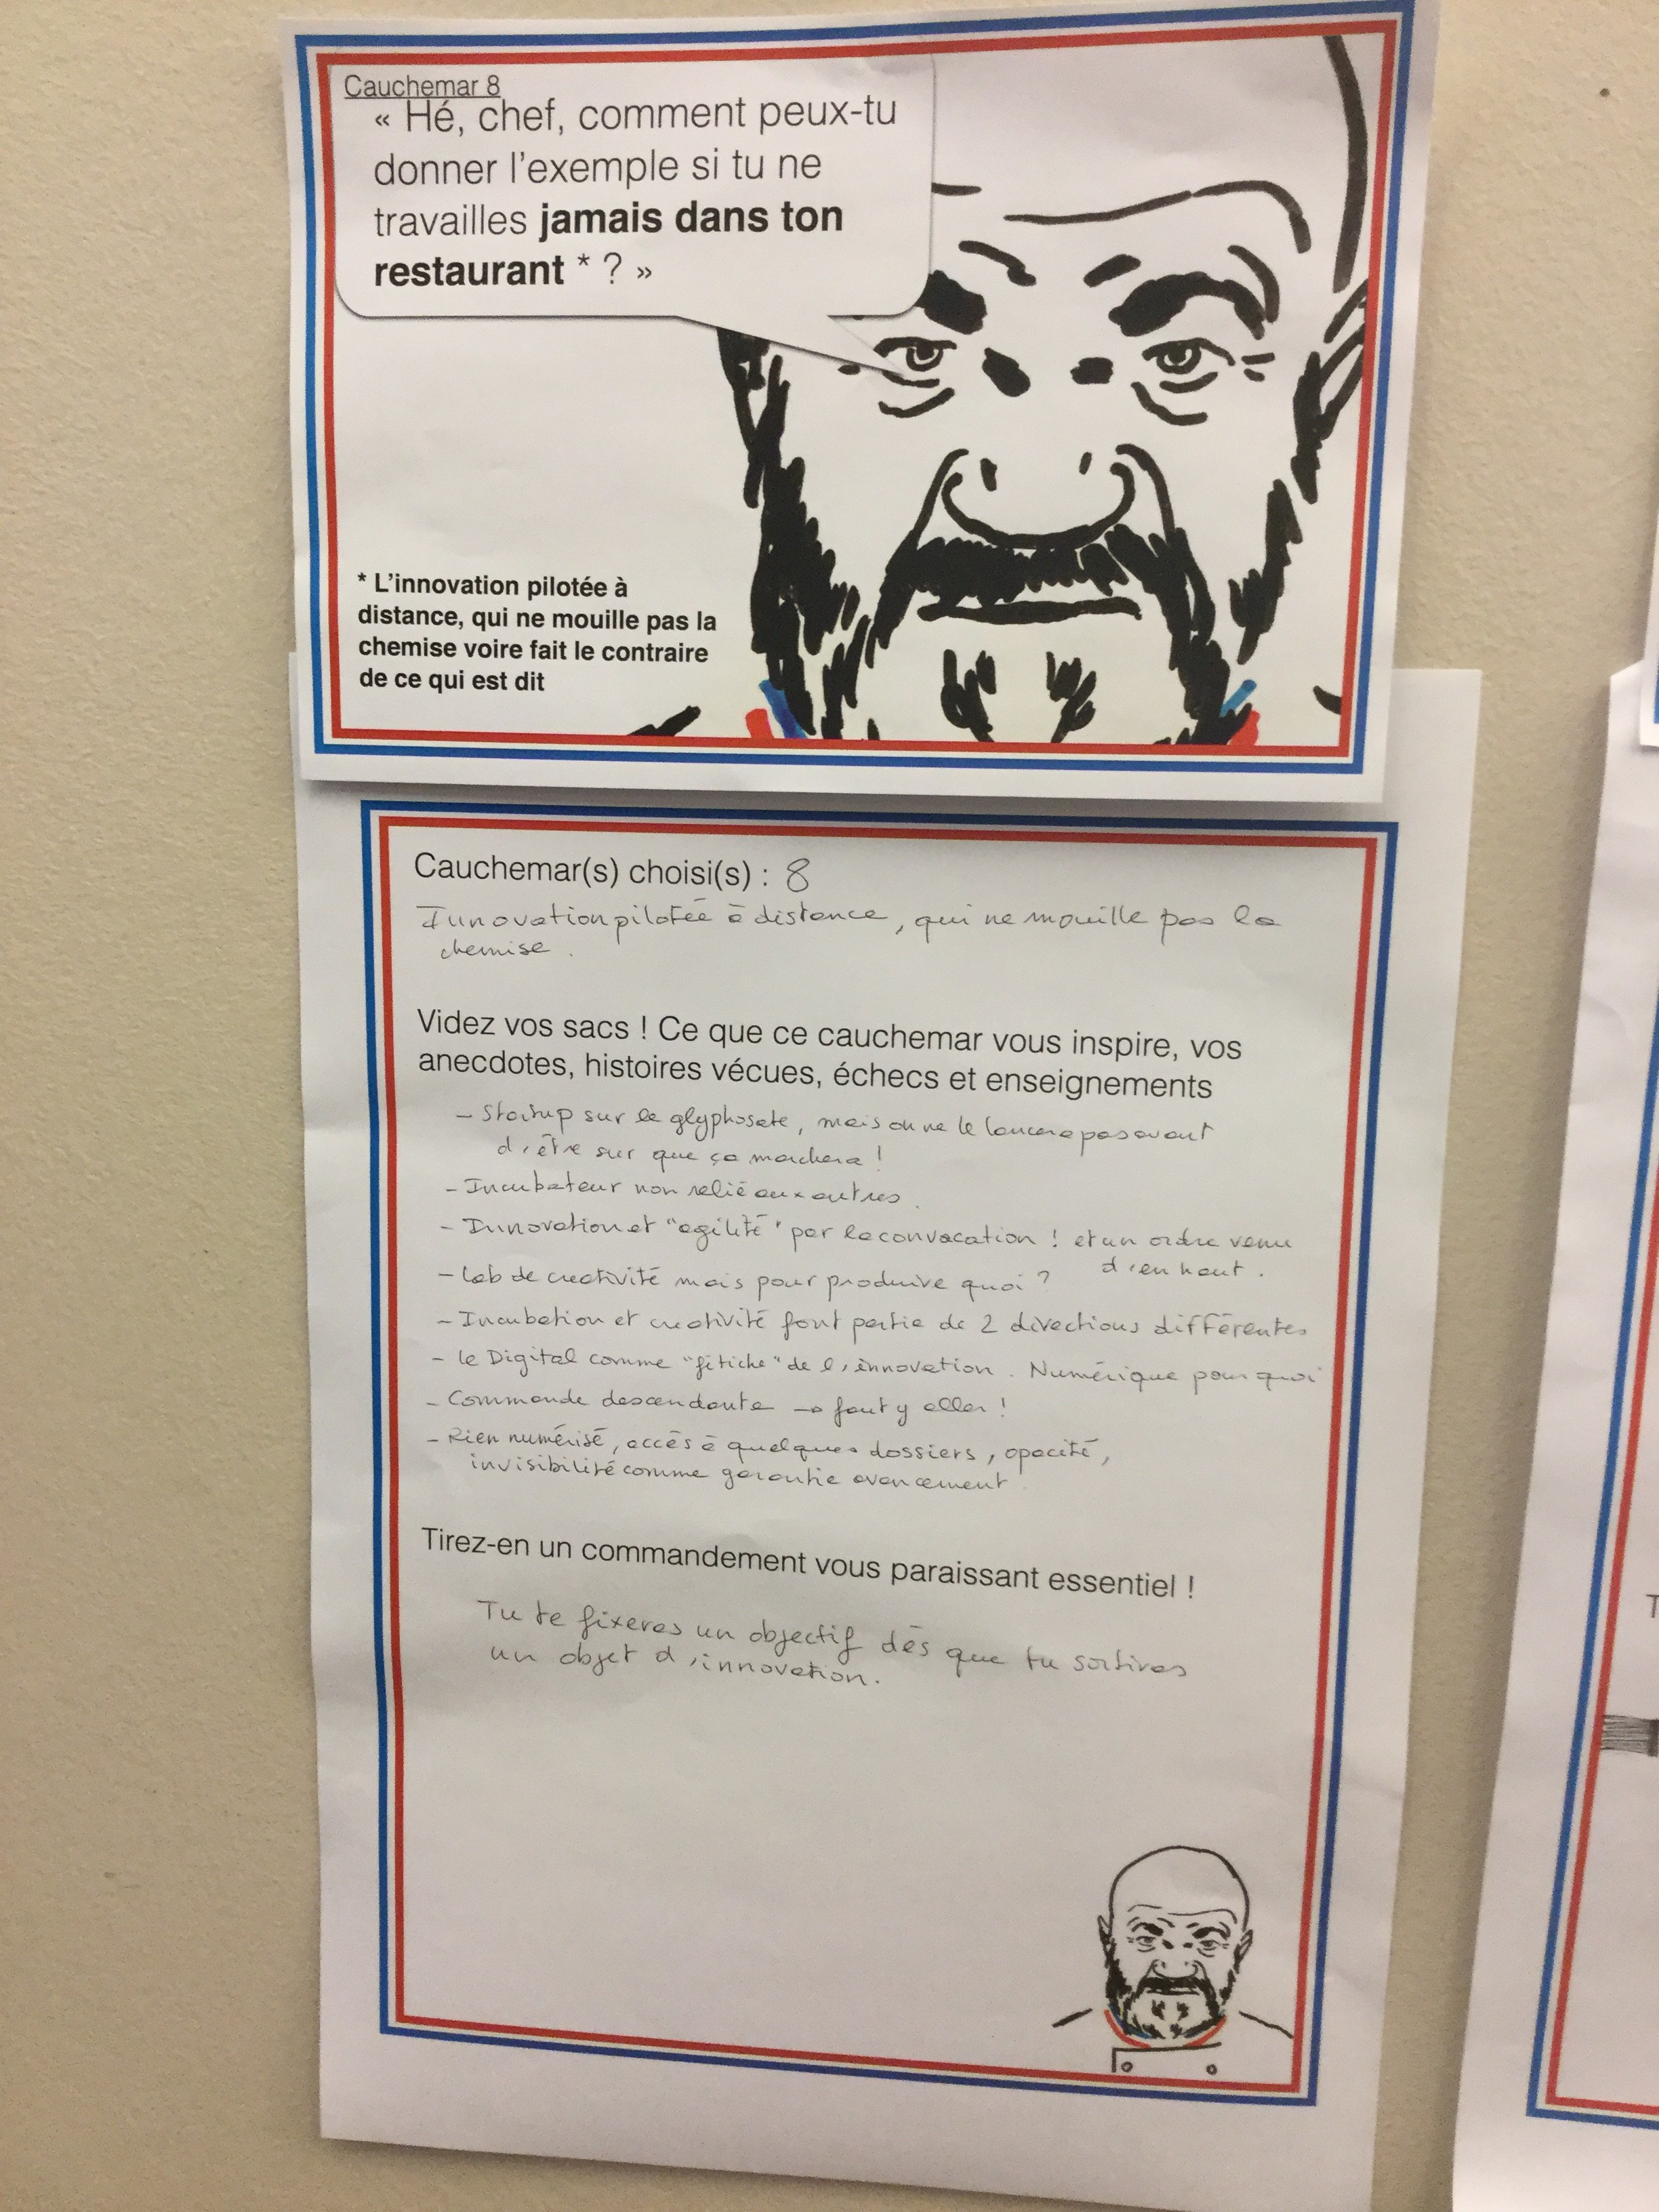 Cauchemar 8
« Hé, chef, comment peux-tu
donner l'exemple si tu ne
travailles jamais dans ton
restaurant * ? »
* L'innovation pilotée à
distance, qui ne mouille pas la
chemise voire fait le contraire
de ce qui est dit
Cauchemar(s) choisi(s) : 8
Innovation pilotée à distance, qui ne mouille pas la
chemise.
Videz vos sacs ! Ce que ce cauchemar vous inspire, vos
anecdotes, histoires vécues, échecs et enseignements
- Startup sur le glyphosate, mais on ne le lancera pas avant
d'être sur que ça marchera !
- Incubateur non relié aux autres.
- Innovation et "agilité" par la convocation ! et un ordre venu
d'en haut.
- Lab de créativité mais pour produire quoi ?
- Incubation et créativité font partie de 2 directions différentes
- le Digital comme "fétiche" de l'innovation. Numérique pour quoi
- Commande descendante → faut y aller !
- Rien numérisé, accès à quelques dossiers, opacité,
invisibilité comme garantie avancement
Tirez-en un commandement vous paraissant essentiel !
Tu te fixeras un objectif dès que tu sortiras
un objet d'innovation.
T